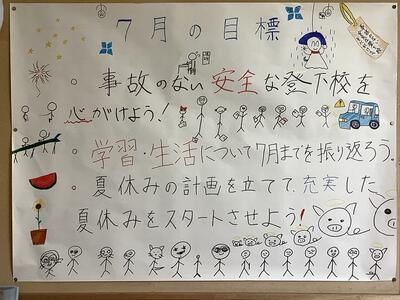 7月の目標
・事故のない安全な登下校を
心がけよう!
・学習・生活について7月までを振り返ろう。
・夏休みの計画を立てて、充実した
夏休みをスタートさせよう!